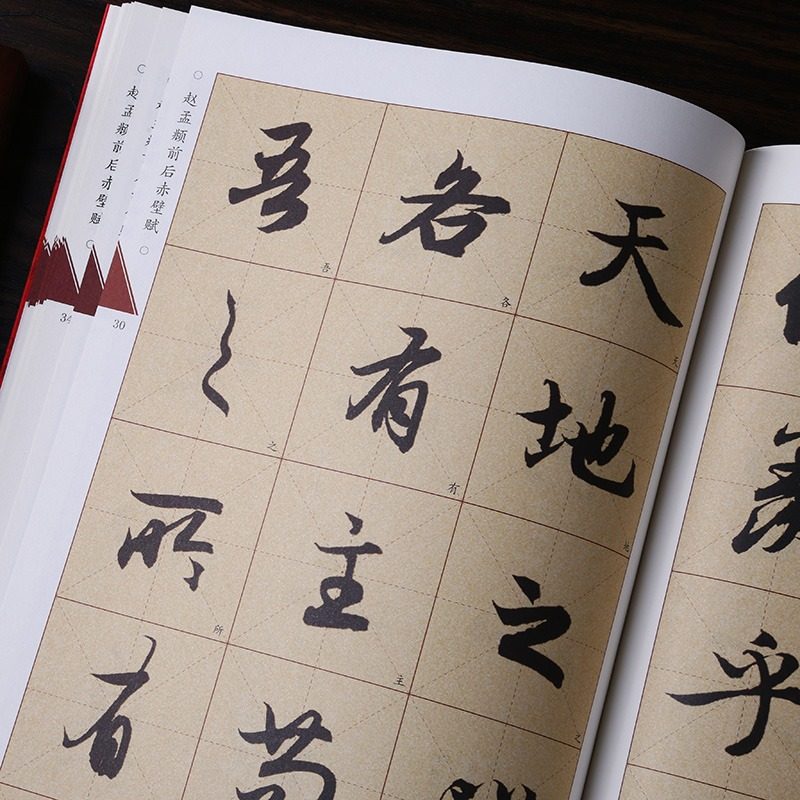 赵孟頫前后赤壁赋
赵孟頫前后赤壁赋
34
30
天地之
各有主苟
吾之所有
天
地
之
各
有
主
吾
之
所
羡乎